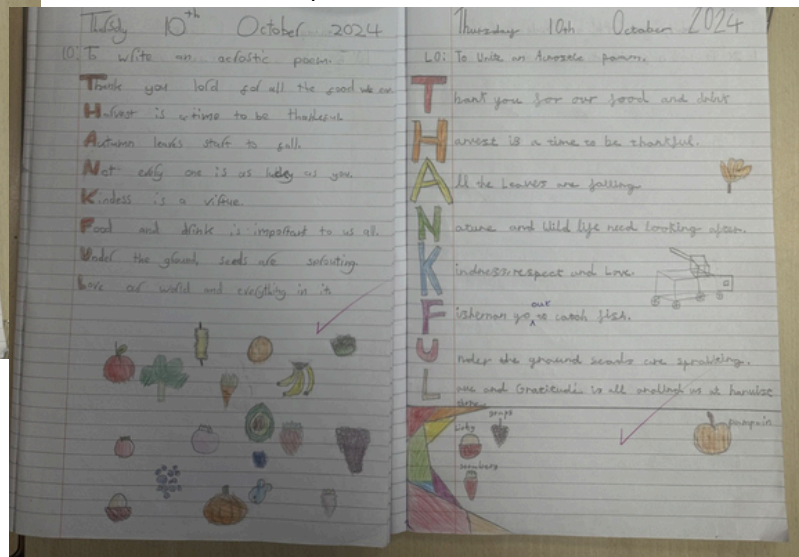 Thursday 10th October 2024
LO: To write an acrostic poem.
Thank you lord for all the food we can
Harvest is a time to be thankful
Autumn leaves start to fall.
Not every one is as lucky as you.
Kindess is a virtue.
Food and drink is important to us all.
Under the ground, seeds are sprouting
Love our world and everything in it.
Thursday 10th October 2024
LO: To Write an Acrostic poem.
Thank you for our food and drink
Harvest is a time to be thankful.
All the Leaves are falling.
Nature and Wild life need Looking after.
Kindness respect and Love.
Fisherman go out to catch fish.
Under the ground seeds are
Love and Gratitude is all around us at